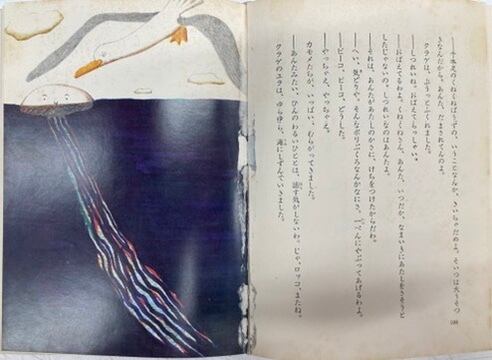 ――十本足のくねくねぼうずの、いうことなんか、きいちゃだめよ。そいつは大うそつ
きなんだから。あんた、だまされてんのよ。
クラゲは、ぷうっとふくれました。
――しつれいね。おぼえてらっしゃい。
――おぼえてるわよ。くねくねさん、あんた、いつだか、なまいきにあたしをさそうと
したじゃないの。しつれいなのはあんたよ。
――それは、あんたがあたしのかさに、けちをつけたからだわ。
――へい、気どりや。そんなポリぶくろなんかなにさ。一ぺんにやぶってあげるわよ。
――ピーコ、ピーコ、どうした。
――やっちゃえ、やっちゃえ。
カモメたちが、いっぱい、むらがってきました。
――あんたみたい、ひんのわるいひととは、話す気がしないわ。じゃ、ロッコ、またね。
クラゲのユラは、ゆらゆら、海にしずんでいきました。